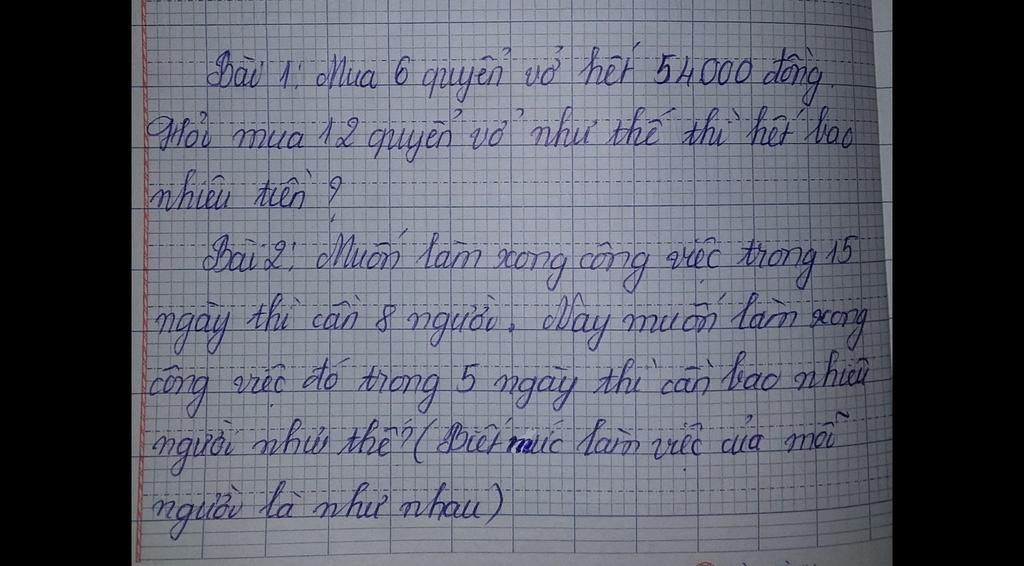 Bài 1: Mua 6 quyển vở hết 54000 đồng.
Hỏi mua 12 quyển vở như thế thì hết bao
nhiêu tiền ?
Bài 2: Muốn làm xong công việc trong 15
ngày thì cần 8 người. Nay muốn làm xong
công việc đó trong 5 ngày thì cần bao nhiêu
người như thế? (Biết mức làm việc của mỗi
người là như nhau)